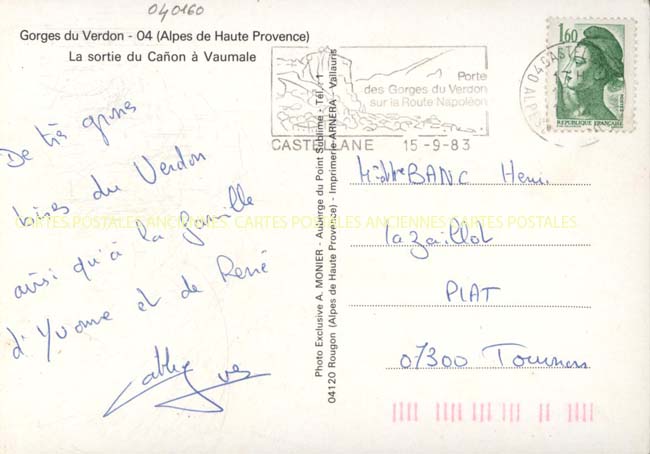 040160
Gorges du Verdon - 04 (Alpes de Haute Provence)
La sortie du Cañon à Vaumale
De très grosses
bises du Verdon
ainsi qu'à la famille
d'Yvonne et de René
Porte
des Gorges du Verdon
sur la Route Napoléon
CASTELLANE 15-9-83
1,60
REPUBLIQUE FRANÇAISE
04 CASTEL
ALPES
Photo Exclusive A. MONIER - Auberge du Point Sublime - Tél. : 1
04120 Rougon (Alpes de Haute Provence) - Imprimerie ARNERA - Vallauris
BANC Henri
Lazaillot
PLAT
07300 Tournon
CARTES POSTALES ANCIENNES. CARTES POSTALES ANCIENNES. CARTES POSTALES